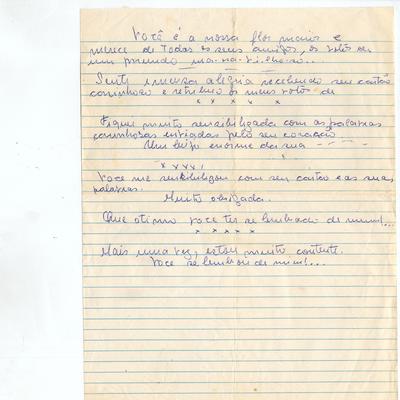 Você é a nossa flor maior e
merece de todos os seus amigos, os votos de
um mundo ma-ra-vi-lho-so...
Senti imensa alegria recebendo seu cartão
carinhoso e retribuo os meus votos de
x x x x x
Fiquei muito sensibilizada com as palavras
carinhosas enviadas pelo seu coração
Um beijo enorme da sua - - - -
x v v v v
Você me sensibilizou com seu cartão e as suas
palavras.
Muito obrigada.
Que otimo voce ter se lembrado de mim!...
x x x x x
Mais uma vez, estou muito contente.
Voce se lembrou de mim!...